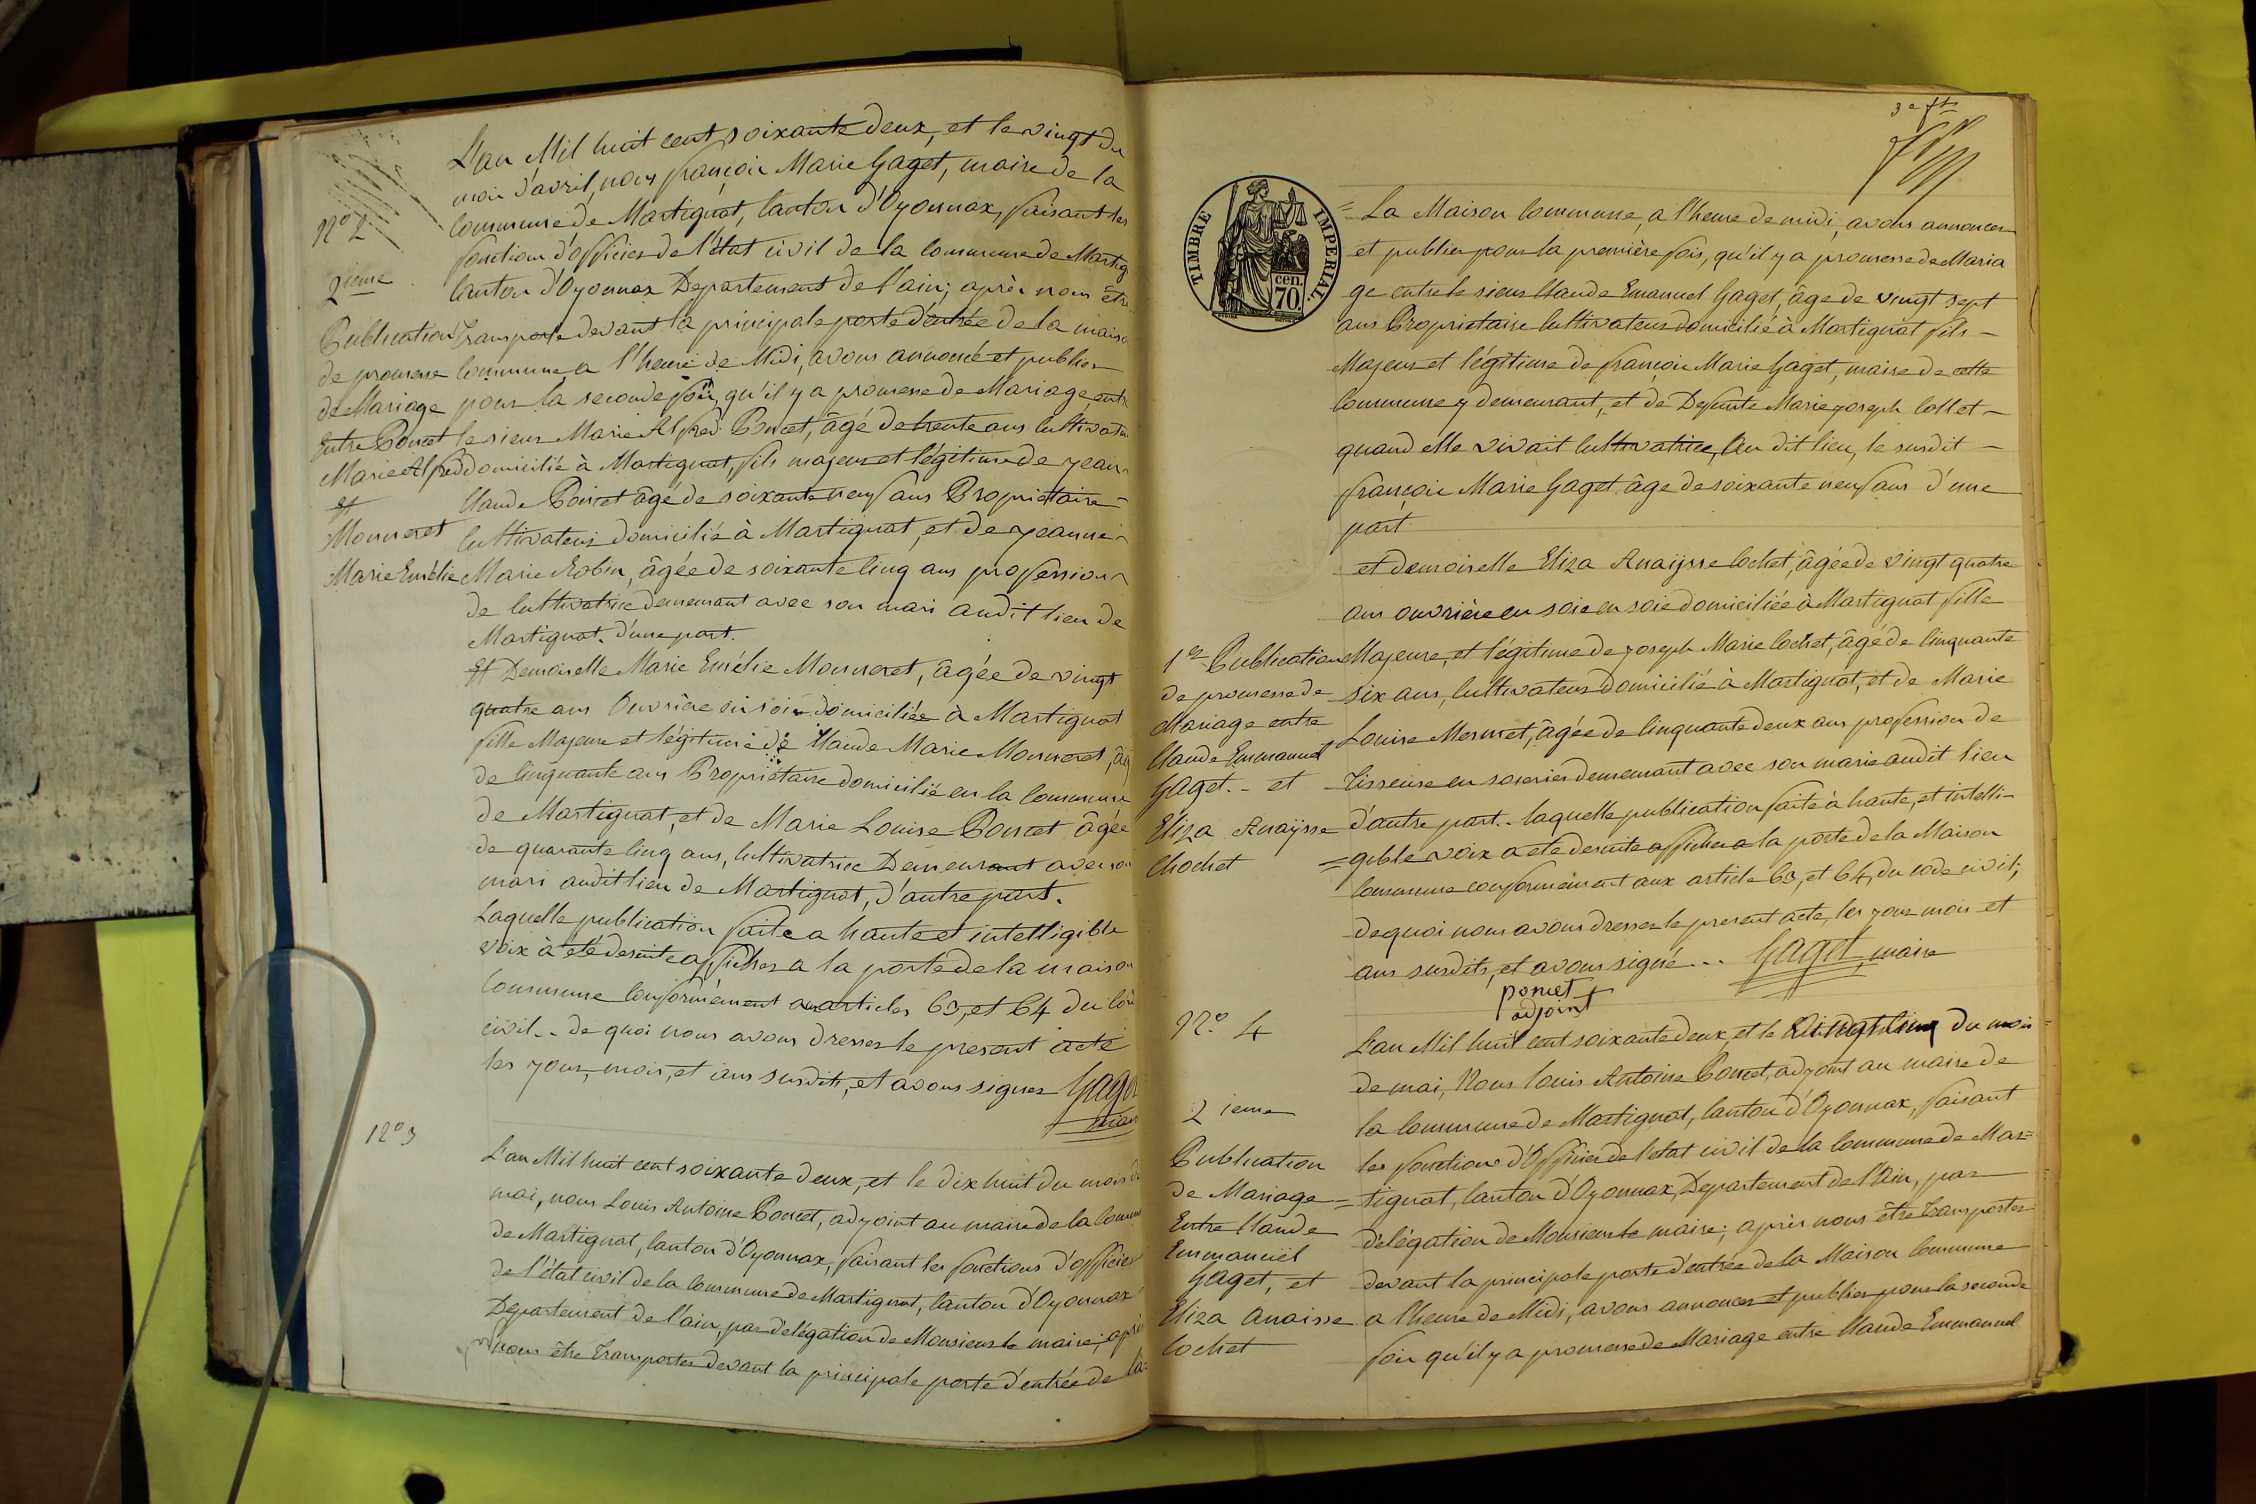 N° 2
2ieme
Publication
de promesse
de Mariage
Entre Poncet
Marie Alfred
et
Monneret
Marie Emélie
L'an Mil huit cent soixante deux, et le vingt du
mois d'avril, nous françois Marie Gaget, maire de la
commune de Martignat, Canton d'Oyonnax, faisant les
fonction d'officier de l'état civil de la commune de Martig
Canton d'Oyonnax Departement de l'ain; après nous être
transporte devant la principale porte d'entrée de la maiso
Commune, a l'heure de Midi, avons annoncé et publier
pour la seconde fois, qu'il y a promesse de Mariage entr
le sieur Marie Alfred Poncet, âgé de trente ans Cultivateur
domicilié à Martignat, fils majeur et légitime de jean-
Claude Poncet âgé de soixante neuf ans Propriétaire-
Cultivateur domicilié à Martignat, et de jeanne-
Marie Robin, âgée de soixante Cinq ans profession-
de Cultivatrice demeurant avec son mari audit lieu de
Martignat. d'une part.
Et Demoiselle Marie Emélie Monneret, âgée de vingt
quatre ans Ouvrière en soie domiciliée à Martignat
fille Majeure et légitime de Claude Marie Monneret, âg
de Cinquante ans Propriétaire domicilié en la Commune
de Martignat, et de Marie Louise Poncet âgée
de quarante Cinq ans, Cultivatrice Demeurant avec son
mari audit lieu de Martignat, d'autre part.
Laquelle publication faite a haute et intelligible
voix à été desuite afficher a la porte de la maison
Commune Conformément aux articles 63, et 64 du Code
civil.. de quoi nous avons dresser le present acte
les jour, mois, et ans susdits, et avons signer Gaget
maire
N° 3
L'an Mil huit cent soixante deux, et le dix huit du mois de
mai, nous Louis Antoine Poncet, adjoint au maire de la Commune
de Martignat, Canton d'Oyonnax, faisant les fonctions d'officier
de l'état civil de la commune de Martignat, Canton d'Oyonnax
Departement de l'ain, par délégation de Monsieur le maire; après
nous être transporter devant la principale porte d'entrée de la=
3e ft
TIMBRE IMPERIAL.
70 cen.
= La Maison Commune, a l'heure de midi, avons annoncer
et publier pour la première fois, qu'il y a promesse de Maria
ge entre le sieur Claude Emanuel Gaget, âge de vingt sept
ans Propriétaire Cultivateur domicilié à Martignat fils -
Majeur et légitime de françois Marie Gaget, maire de cette
Commune y demeurant, et de Defunte Marie joseph Collet -
quand elle vivait Cultivatrice, Au dit lieu, le susdit -
françois Marie Gaget âge de soixante neuf ans d'une
part
et demoiselle Eliza Anaïjsse Cochet, âgée de vingt quatre
ans ouvrière en soie en soie domiciliée à Martignat fille
Majeure, et légitime de joseph Marie Cochet, âgé de Cinquante
six ans, Cultivateur domicilié à Martignat, et de Marie
Louise Mermet, âgée de Cinquante deux ans profession de
Tisseuse en soieries demeurant avec son marie audit lieu
d'autre part.- laquelle publication faite à haute, et intelli-
=gible voix a eté desuite afficher a la porte de la Maison
Commune conformément aux article 63, et 64, du code civil,
de quoi nous avons dresser le present acte, les jour mois et
ans susdits, et avons signé... Gaget, maire
poncet
adjoint
1er Publication
de promesse de
Mariage entre
Claude Emmanuel
Gaget.- et
Eliza Anaïjsse
Chochet
N° 4
2 ieme
Publication
de Mariage
Entre Claude
Emmanuel
Gaget, et
Eliza Anaisse
Cochet
L'an Mil huit cent soixante deux, et le Vingt Cinq du mois
de mai, Nous Louis Antoine Poncet, adjoint au maire de
la Commune de Martignat, Canton d'Oyonnax, faisant
les fonctions d'Officier de l'etat civil de la Commune de Mar=
=tignat, Canton d'Oyonnax, Departement de l'Ain, par
délégation de Monsieur le maire; après nous être transporter
devant la principale porte d'entrée de la Maison Commune
a l'heure de Midi, avons annoncer et publier pour la seconde
fois qu'il y a promesse de Mariage entre Claude Emmanuel